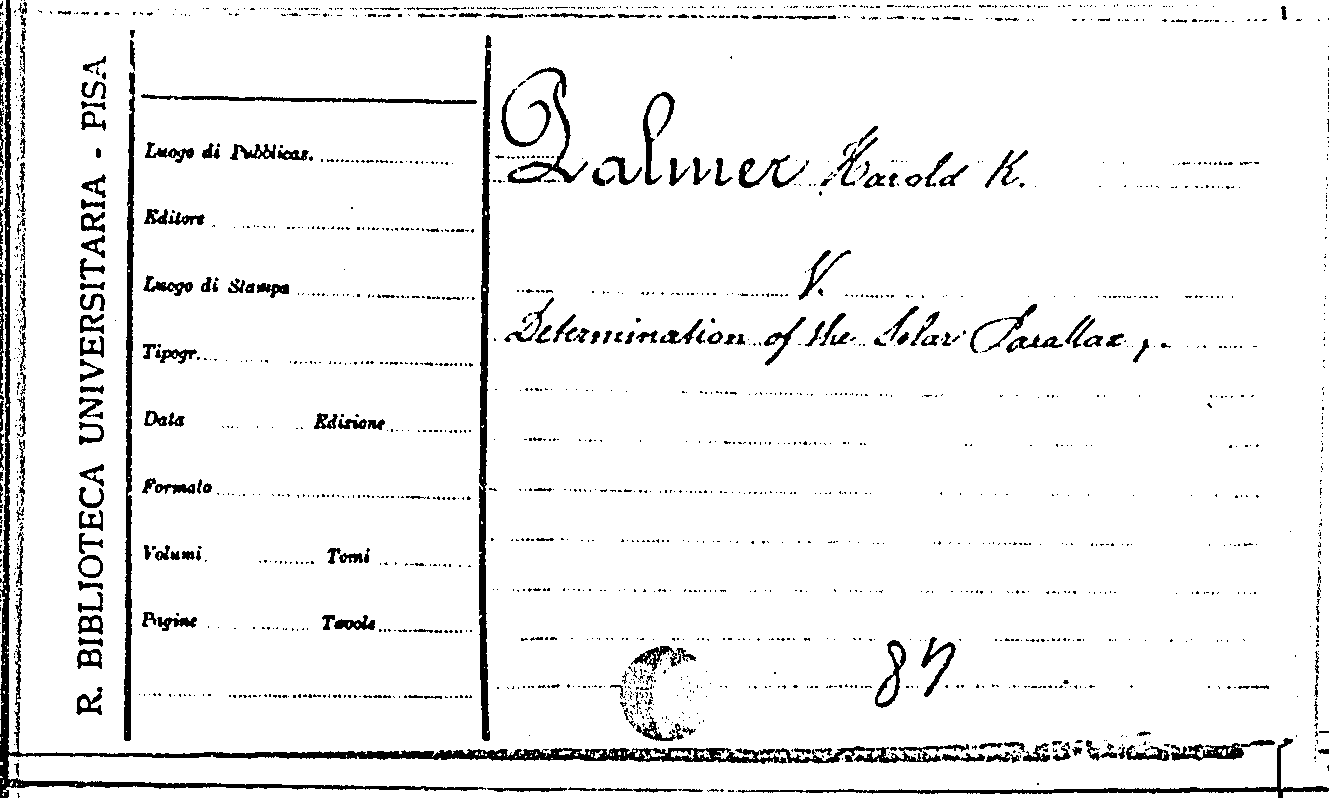 R. BIBLIOTECA UNIVERSITARIA - PISA
Luogo di Pubblicaz.
Editore
Luogo di Stampa
Tipogr.
Data Edizione
Formato
Volumi Tomi
Pagine Tavole
Palmer Harold K.
V.
Determination of the Solar Parallax,.
87